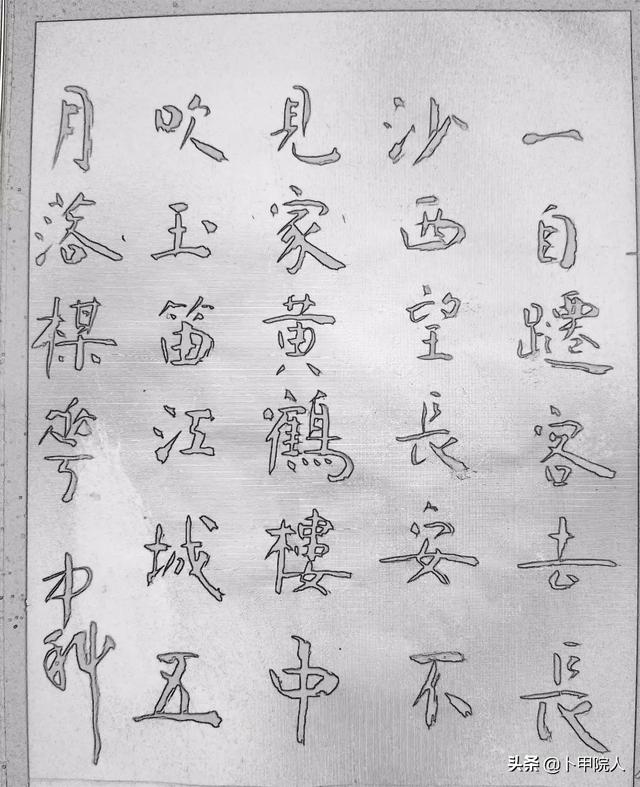 一自遷客去長
沙西望長安不
見家黄鶴樓中
吹玉笛江城五
月落楳華
头条 @卜甲院人